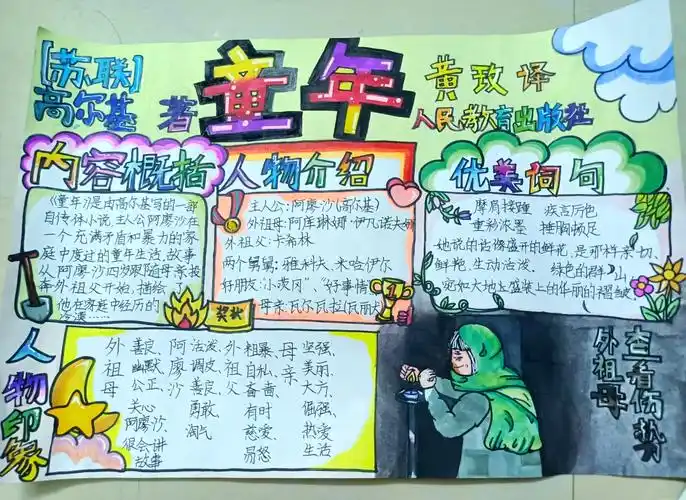 [苏联]
高尔基 著
童年
黄玫 译
人民教育出版社
内容概括
《童年》是由高尔基写的一部
自传体小说,主人公阿廖沙在
一个充满矛盾和暴力的家
庭中度过的童年生活,故事
从阿廖沙四岁跟随母亲投
奔外祖父开始,描绘了
他在家庭中经历的
冷漠……
人物介绍
主人公:阿廖沙(高尔基)
外祖母:阿库琳娜·伊凡诺夫娜
外祖父:卡希林
两个舅舅:雅科夫、米哈伊尔
好朋友:"小茨冈"、"好事情"
母亲:瓦尔瓦拉(瓦丽
奖状
优美词句
摩肩接踵 疾言厉色
重彩浓墨 捶胸顿足
她说的话像盛开的鲜花,是那样亲切、
鲜艳、生动活泼. 绿色的群山,
宛如大地上盛装上的华丽的褶皱
人物印象
外祖母
善良、
幽默
公正
关心
阿廖沙、
很会讲
故事
阿廖沙
活泼、
调皮
善良、
勇敢
淘气
外祖父
粗暴、
自私、
吝啬、
有时
慈爱、
易怒
母亲
坚强、
美丽、
大方、
倔强、
热爱
生活
外祖母
查看伤势